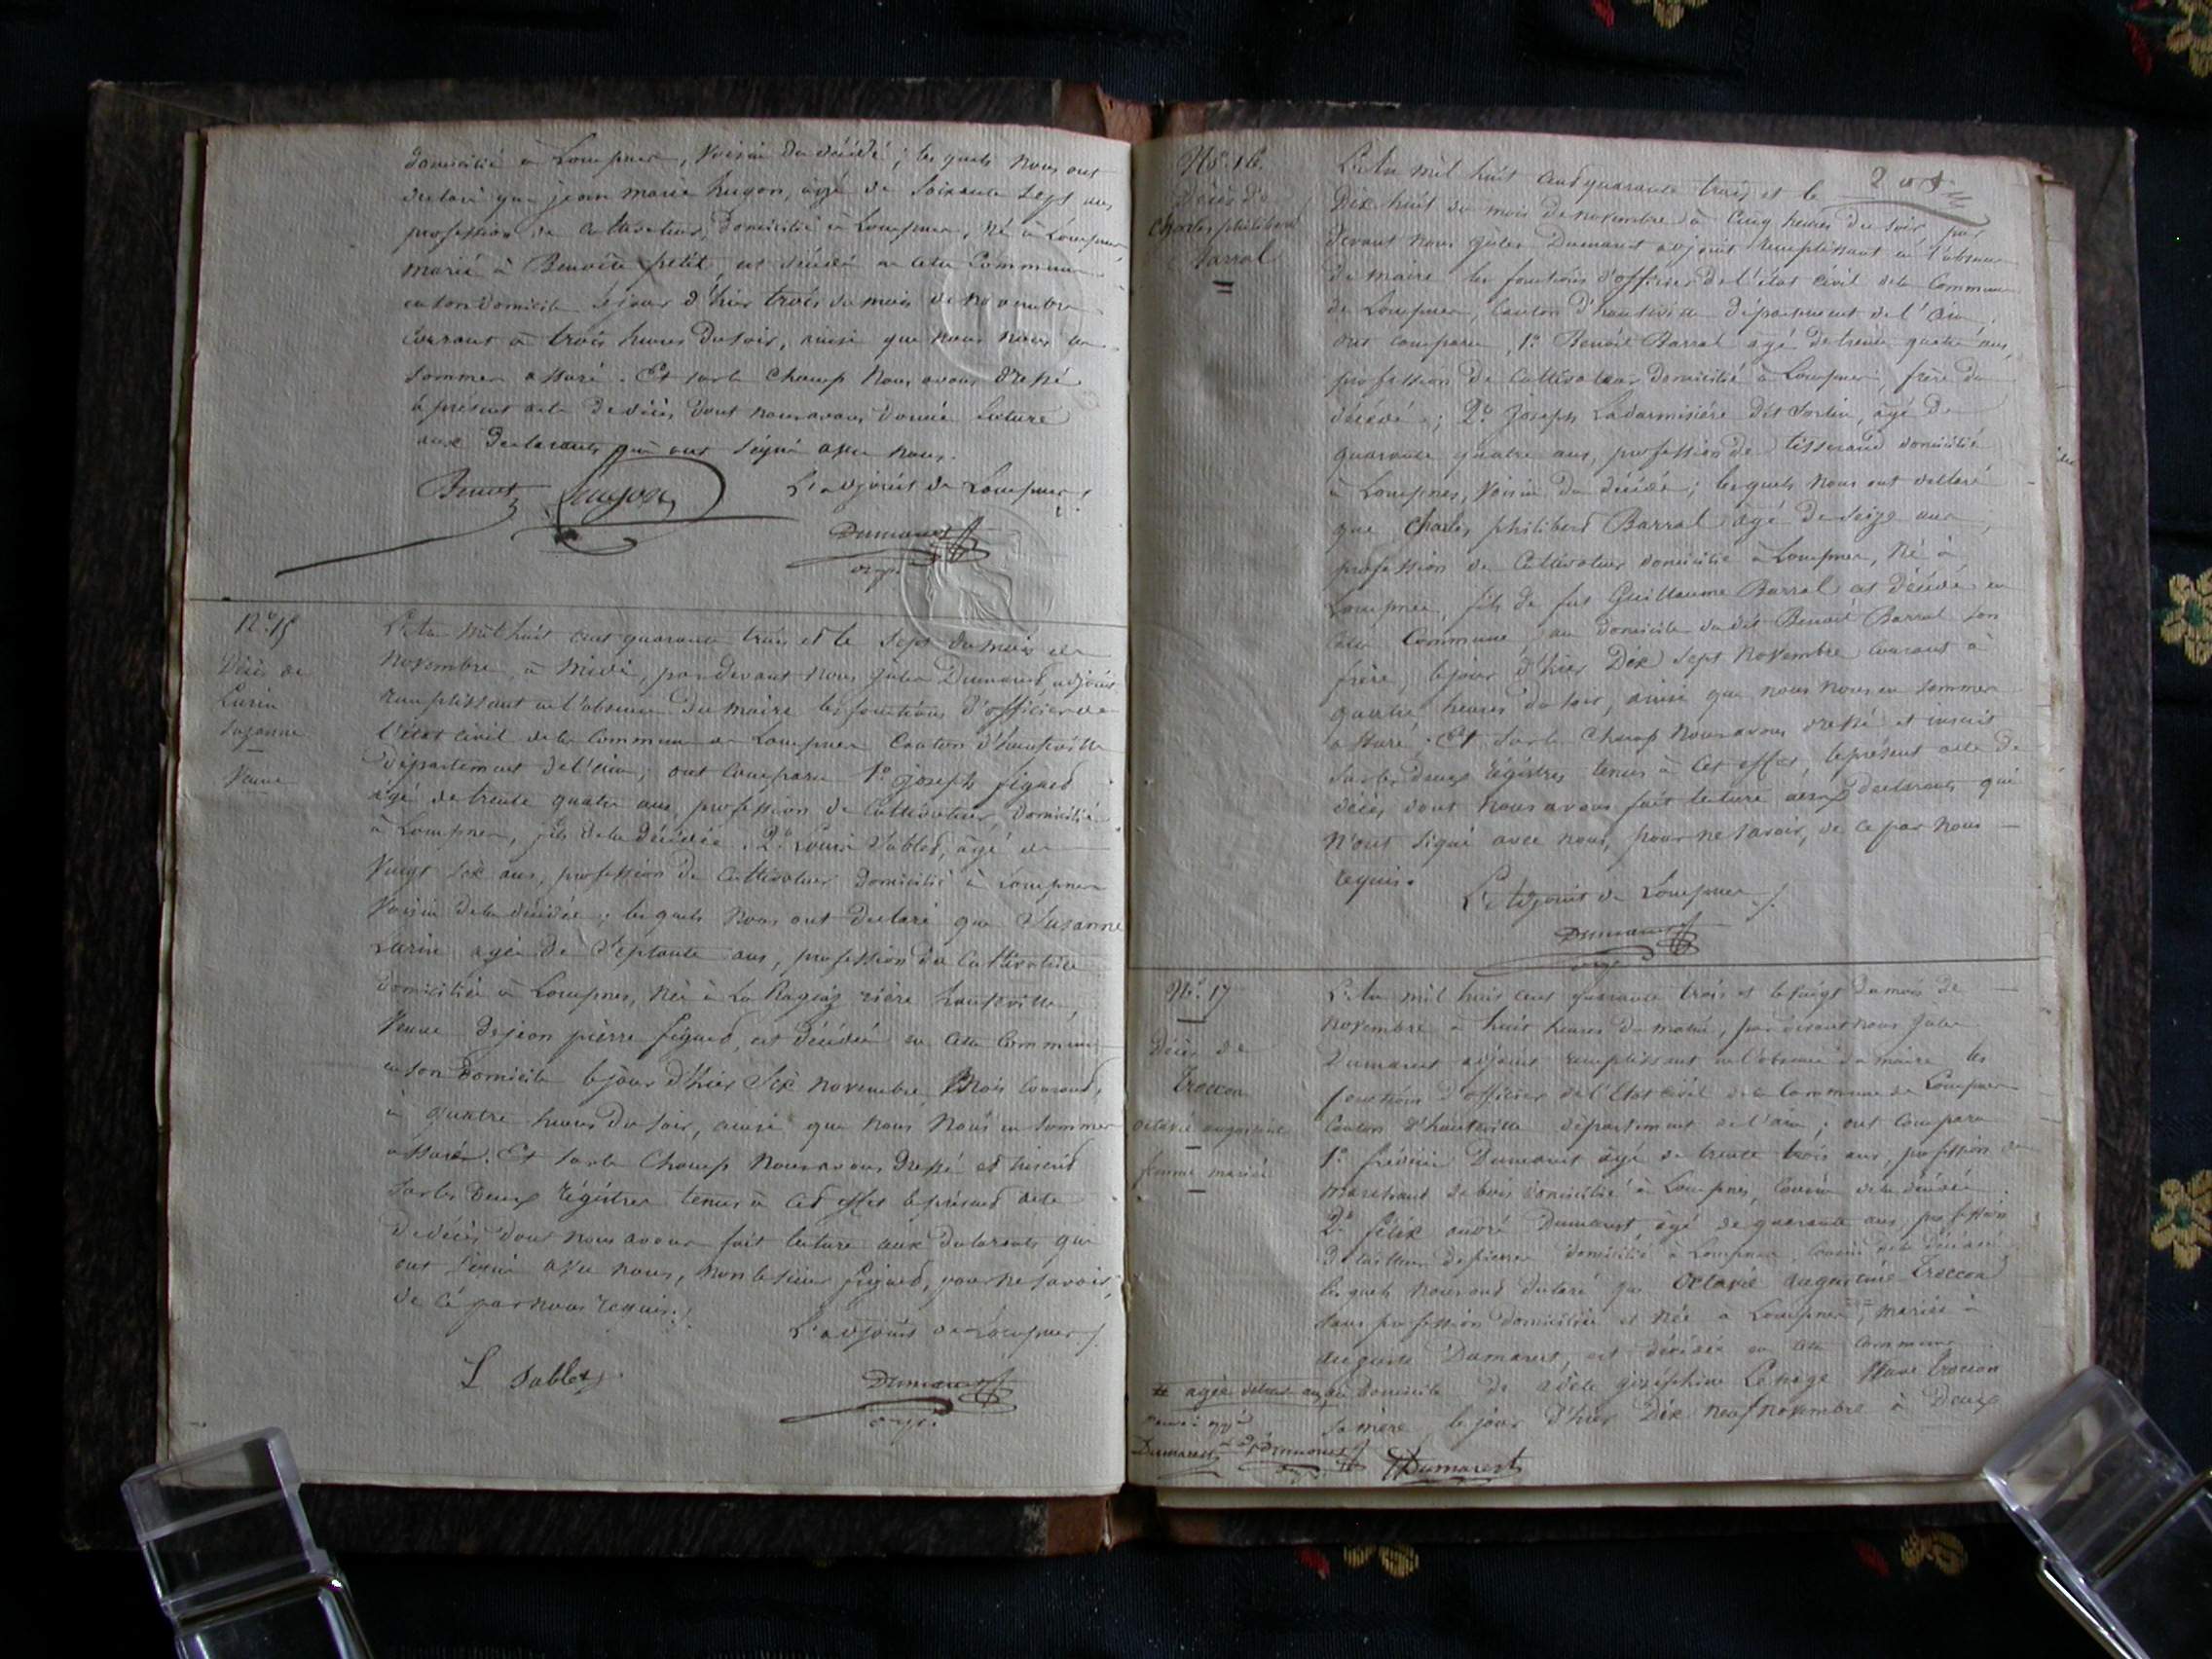 domicilié à Lompnes, voisin du décédé ; lesquels nous ont
declaré que jean marie hugon, agé de Soixante Sept ans
profession de Cultivateur, domicilié à Lompnes, né à Lompnes,
marié à Benoite petit, est décédé en cette Commune
en son domicile le jour d'hier trois du mois de novembre
courant à trois heures du soir, ainsi que nous nous en
sommes assuré. Et sur le champ Nous avons dressé
le présent acte de décès dont nous avons donné lecture
aux declarants qui ont signé avec nous.
L'adjoint de Lompnes
Dumarest
N° 15
Décès de
Larin
Suzanne
Veuve
L'an mil huit cent quarante trois et le Sept du mois de
Novembre, à Midi, par devant nous Jules Dumarest, adjoint
remplissant en l'absence du maire les fonctions d'officier de
l'état civil de la Commune de Lompnes Canton d'hauteville
département de l'ain ; ont comparu 1° joseph figued
agé de trente quatre ans, profession de Cultivateur, domicilié
à Lompnes, fils de la décédée. 2° Louis Sablet, âgé de
Vingt Six ans, profession de Cultivateur domicilié à Lompnes
Voisin de la décédée ; lesquels Nous ont declaré que Suzanne
Larin agée de Septante ans, profession de Cultivatrice
domiciliée à Lompnes, Née à La rière hauteville,
Veuve de jean pierre figued, est décédée en cette Commune
en son domicile le jour d'hier Six novembre, Mois Courant,
à quatre heures du soir, ainsi que nous Nous en sommes
assuré. Et sur le Champ Nous avons dressé et inscrit
sur les Deux régistres tenus à cet effet le présent acte
de décès dont nous avons fait lecture aux declarants qui
ont signé avec nous, non le sieur figued, pour ne savoir,
de ce par nous requis.
L'adjoint de Lompnes
L Sablet
Dumarest
N° 16.
Décès de
Charles philibert
Barral
L'an mil huit cent quarante trois et le
Dix huit du mois de novembre à Cinq heures du soir par
devant nous Jules Dumarest adjoint remplissant en l'absence
du maire les fonctions d'officier de l'état civil de la Commune
de Lompnes, Canton d'hauteville département de l'ain,
ont comparu 1° Benoit Barral agé de trente quatre ans,
profession de Cultivateur domicilié à Lompnes, frère du
décédé ; 2° Joseph Ladarmisiére dit agé de
quarante quatre ans, profession de tisserand domicilié
à Lompnes, Voisin du décédé ; lesquels nous ont declaré
que Charles philibert Barral agé de Seize ans
profession de Cultivateur domicilié à Lompnes, Né à
Lompnes, fils de feu Guillaume Barral est décédé en
cette Commune, au domicile du dit Benoit Barral son
frère, le jour d'hier Dix Sept Novembre courant à
quatre heures du soir, ainsi que nous nous en sommes
assuré. Et sur le Champ Nous avons dressé et inscrit
sur les Deux régistres tenus à cet effet, le présent acte de
décès, dont nous avons fait lecture aux declarants qui
N'ont signé avec nous, pour ne savoir, de ce par nous
requis.
L'Adjoint de Lompnes
Dumarest
N° 17
Décès de
Troccon
octavie augustine
femme mariée
L'an mil huit cent quarante trois et le Vingt du mois de
Novembre à huit heures du matin, par devant nous Jules
Dumarest adjoint remplissant en l'absence du maire les
fonctions d'officier de l'Etat civil de la Commune de Lompnes
Canton d'hauteville département de l'ain ; ont comparu
1° frédéric Dumarest agé de trente trois ans, profession de
marchand de bois domicilié à Lompnes, Cousin de la décédée.
2° félix andré Dumarest, âgé de quarante ans, profession
de tailleur de pierre domicilié à Lompnes, Cousin de la décédée
lesquels nous ont declaré que Octavie Augustine Troccon
sans profession domiciliée et Née à Lompnes, mariée à
auguste Dumarest, est décédée en cette commune
au Domicile de adèle joséphine Veuve troccon
sa mère le jour d'hier Dix neuf novembre à Deux
agée de
Dumarest
Dumarest
Dumarest